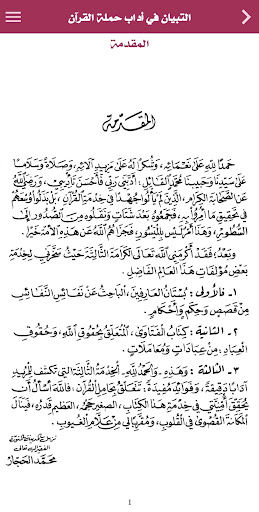 التبيان في آداب حملة القرآن
المقدمة
المقدّمة
حمدًا لله على نعمائه، وشكرًا له على مزيد آلائه، وصلاة وسلامًا
على سيدنا وحبيبنا محمد القائل: أدبني ربي فأحسن تأديبي، ورضي الله
عن الصحابة الكرام، الذين لم يألوا جهدًا في خدمة القرآن، بل بذلوا وسعهم
في تحقيق ما أمروا به، فجمعوه بعد شتات ونقلوه من الصدور إلى
السطور، وهذا أمر ليس بالميسور، فجزاهم الله عن الأمة خيرًا.
وبعد: فقد أكرمني الله تعالى الكرامة الثالثة حيث سخرني لخدمة
بعض مؤلفات هذا العالم الفاضل.
١- فالأولى: بستان العارفين، الباحث عن نفائس النفائس
من قصص وحكم وأحكام.
٢- الثانية: كتاب الفتاوى، المتعلق بحقوق الله، وحقوق
العباد: من عبادات ومعاملات.
٣- الثالثة: وهذه - والحمد لله - الخدمة الثالثة التي تكتنف للمريد
آدابًا دقيقة، وفوائد مفيدة: تتعلق بحامل القرآن: فالله أسأل أن
يحقق أمنيتي في خدمة هذا الكتاب، الصغير حجمه، العظيم قدره، فينال
المكانة القصوى في القلوب، ومقربًا لي من علام الغيوب.
نزيل المدينة المنورة
الفقير إليه تعالى
محمد الحجار
1